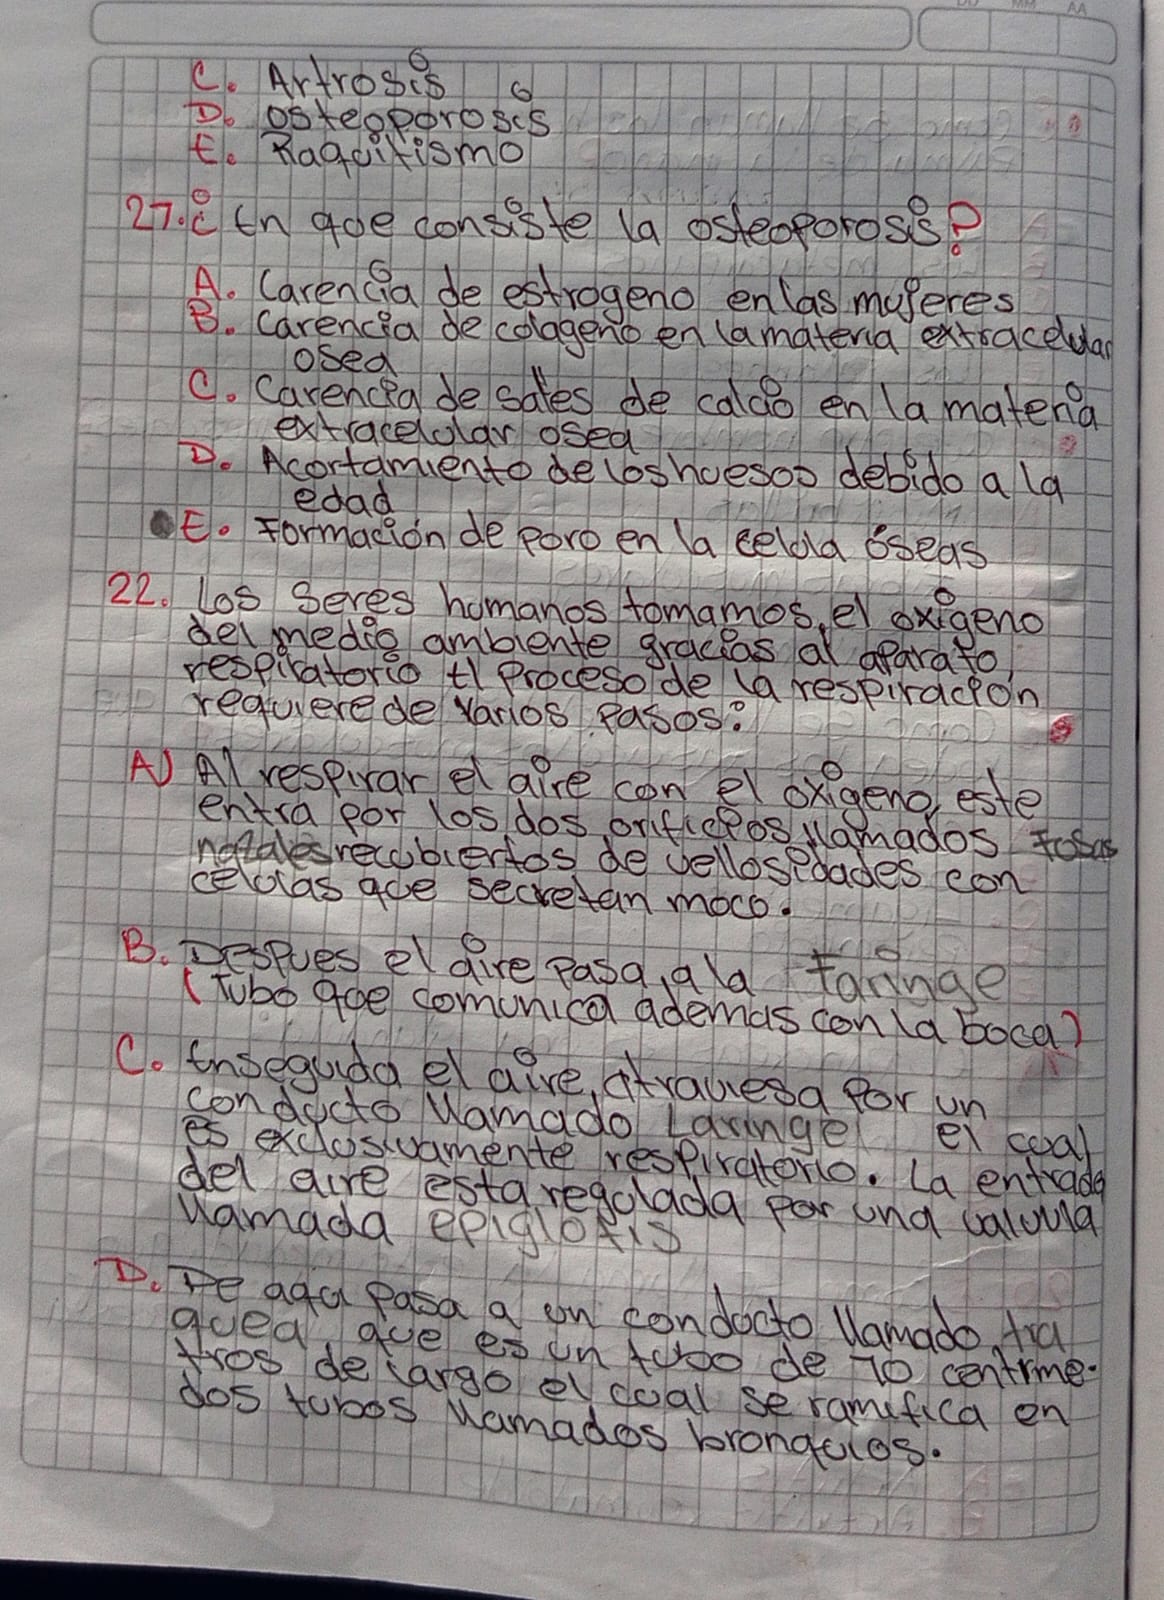 C. Artrosis
D. osteoporosis
E. Raquitismo
27. ¿ En que consiste la osteoporosis?
A. Carencia de estrogeno en las mujeres
B. Carencia de colageno en la materia extracelular
osea
C. Carencia de sales de calcio en la materia
extracelular osea
D. Acortamiento de los huesos debido a la
edad
E. Formación de poro en la celula óseas
22. Los seres humanos tomamos, el oxigeno
del medio ambiente gracias al aparato
respiratorio El Proceso de la respiración
requiere de varios pasos:
A) Al respirar el aire con el oxigeno, este
entra por los dos orificios llamados fosas
natales recubiertos de vellosidades con
celulas que secretan moco.
B. Despues el aire pasa, a la faringe
(Tubo que comunica ademas con la boca)
C. Enseguida el aire, atraviesa por un
conducto llamado Laringe el cual
es exclusivamente respiratorio. La entrada
del aire esta regulada por una valvula
llamada epiglotis
D. De aqui pasa a un conducto llamado tra
quea, que es un tubo de 10 centime-
tros de largo el cual se ramifica en
dos tubos llamados bronquios.